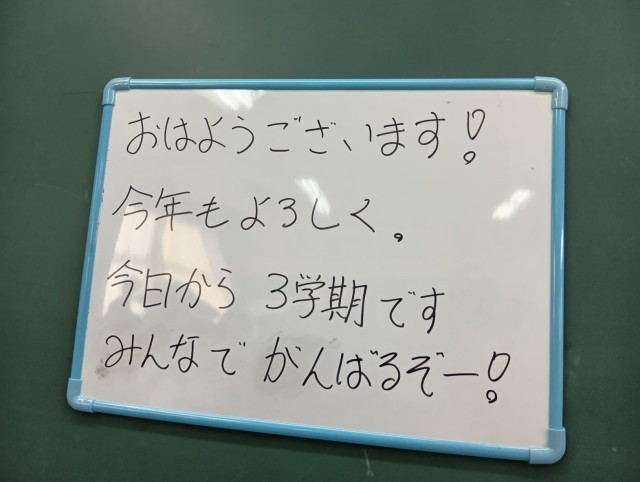 おはようございます!
今年もよろしく。
今日から 3学期です
みんなで がんばるぞー!